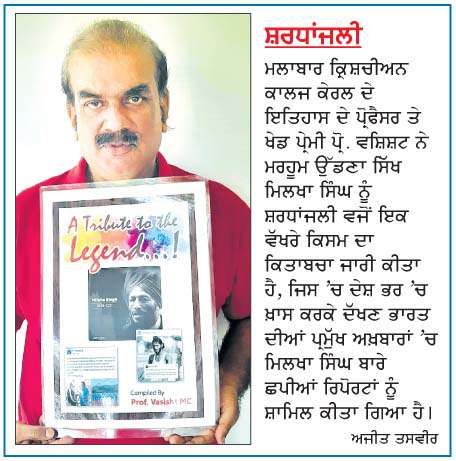 ਸ਼ਰਧਾਂਜਲੀ
ਮਲਾਬਾਰ ਕ੍ਰਿਸ਼ਚੀਅਨ
ਕਾਲਜ ਕੇਰਲ ਦੇ
ਇਤਿਹਾਸ ਦੇ ਪ੍ਰੋਫੈਸਰ ਤੇ
ਖੇਡ ਪ੍ਰੇਮੀ ਪ੍ਰੋ. ਵਸ਼ਿਸ਼ਟ ਨੇ
ਮਰਹੂਮ ਉੱਡਣਾ ਸਿੱਖ
ਮਿਲਖਾ ਸਿੰਘ ਨੂੰ
ਸ਼ਰਧਾਂਜਲੀ ਵਜੋਂ ਇਕ
ਵੱਖਰੇ ਕਿਸਮ ਦਾ
ਕਿਤਾਬਚਾ ਜਾਰੀ ਕੀਤਾ
ਹੈ, ਜਿਸ ’ਚ ਦੇਸ਼ ਭਰ ’ਚ
ਖ਼ਾਸ ਕਰਕੇ ਦੱਖਣ ਭਾਰਤ
ਦੀਆਂ ਪ੍ਰਮੁੱਖ ਅਖ਼ਬਾਰਾਂ ’ਚ
ਮਿਲਖਾ ਸਿੰਘ ਬਾਰੇ
ਛਪੀਆਂ ਰਿਪੋਰਟਾਂ ਨੂੰ
ਸ਼ਾਮਿਲ ਕੀਤਾ ਗਿਆ ਹੈ।
ਅਜੀਤ ਤਸਵੀਰ
A Tribute to the
Legend...!
Milkha Singh
Compiled By
Prof. Vasisht MC